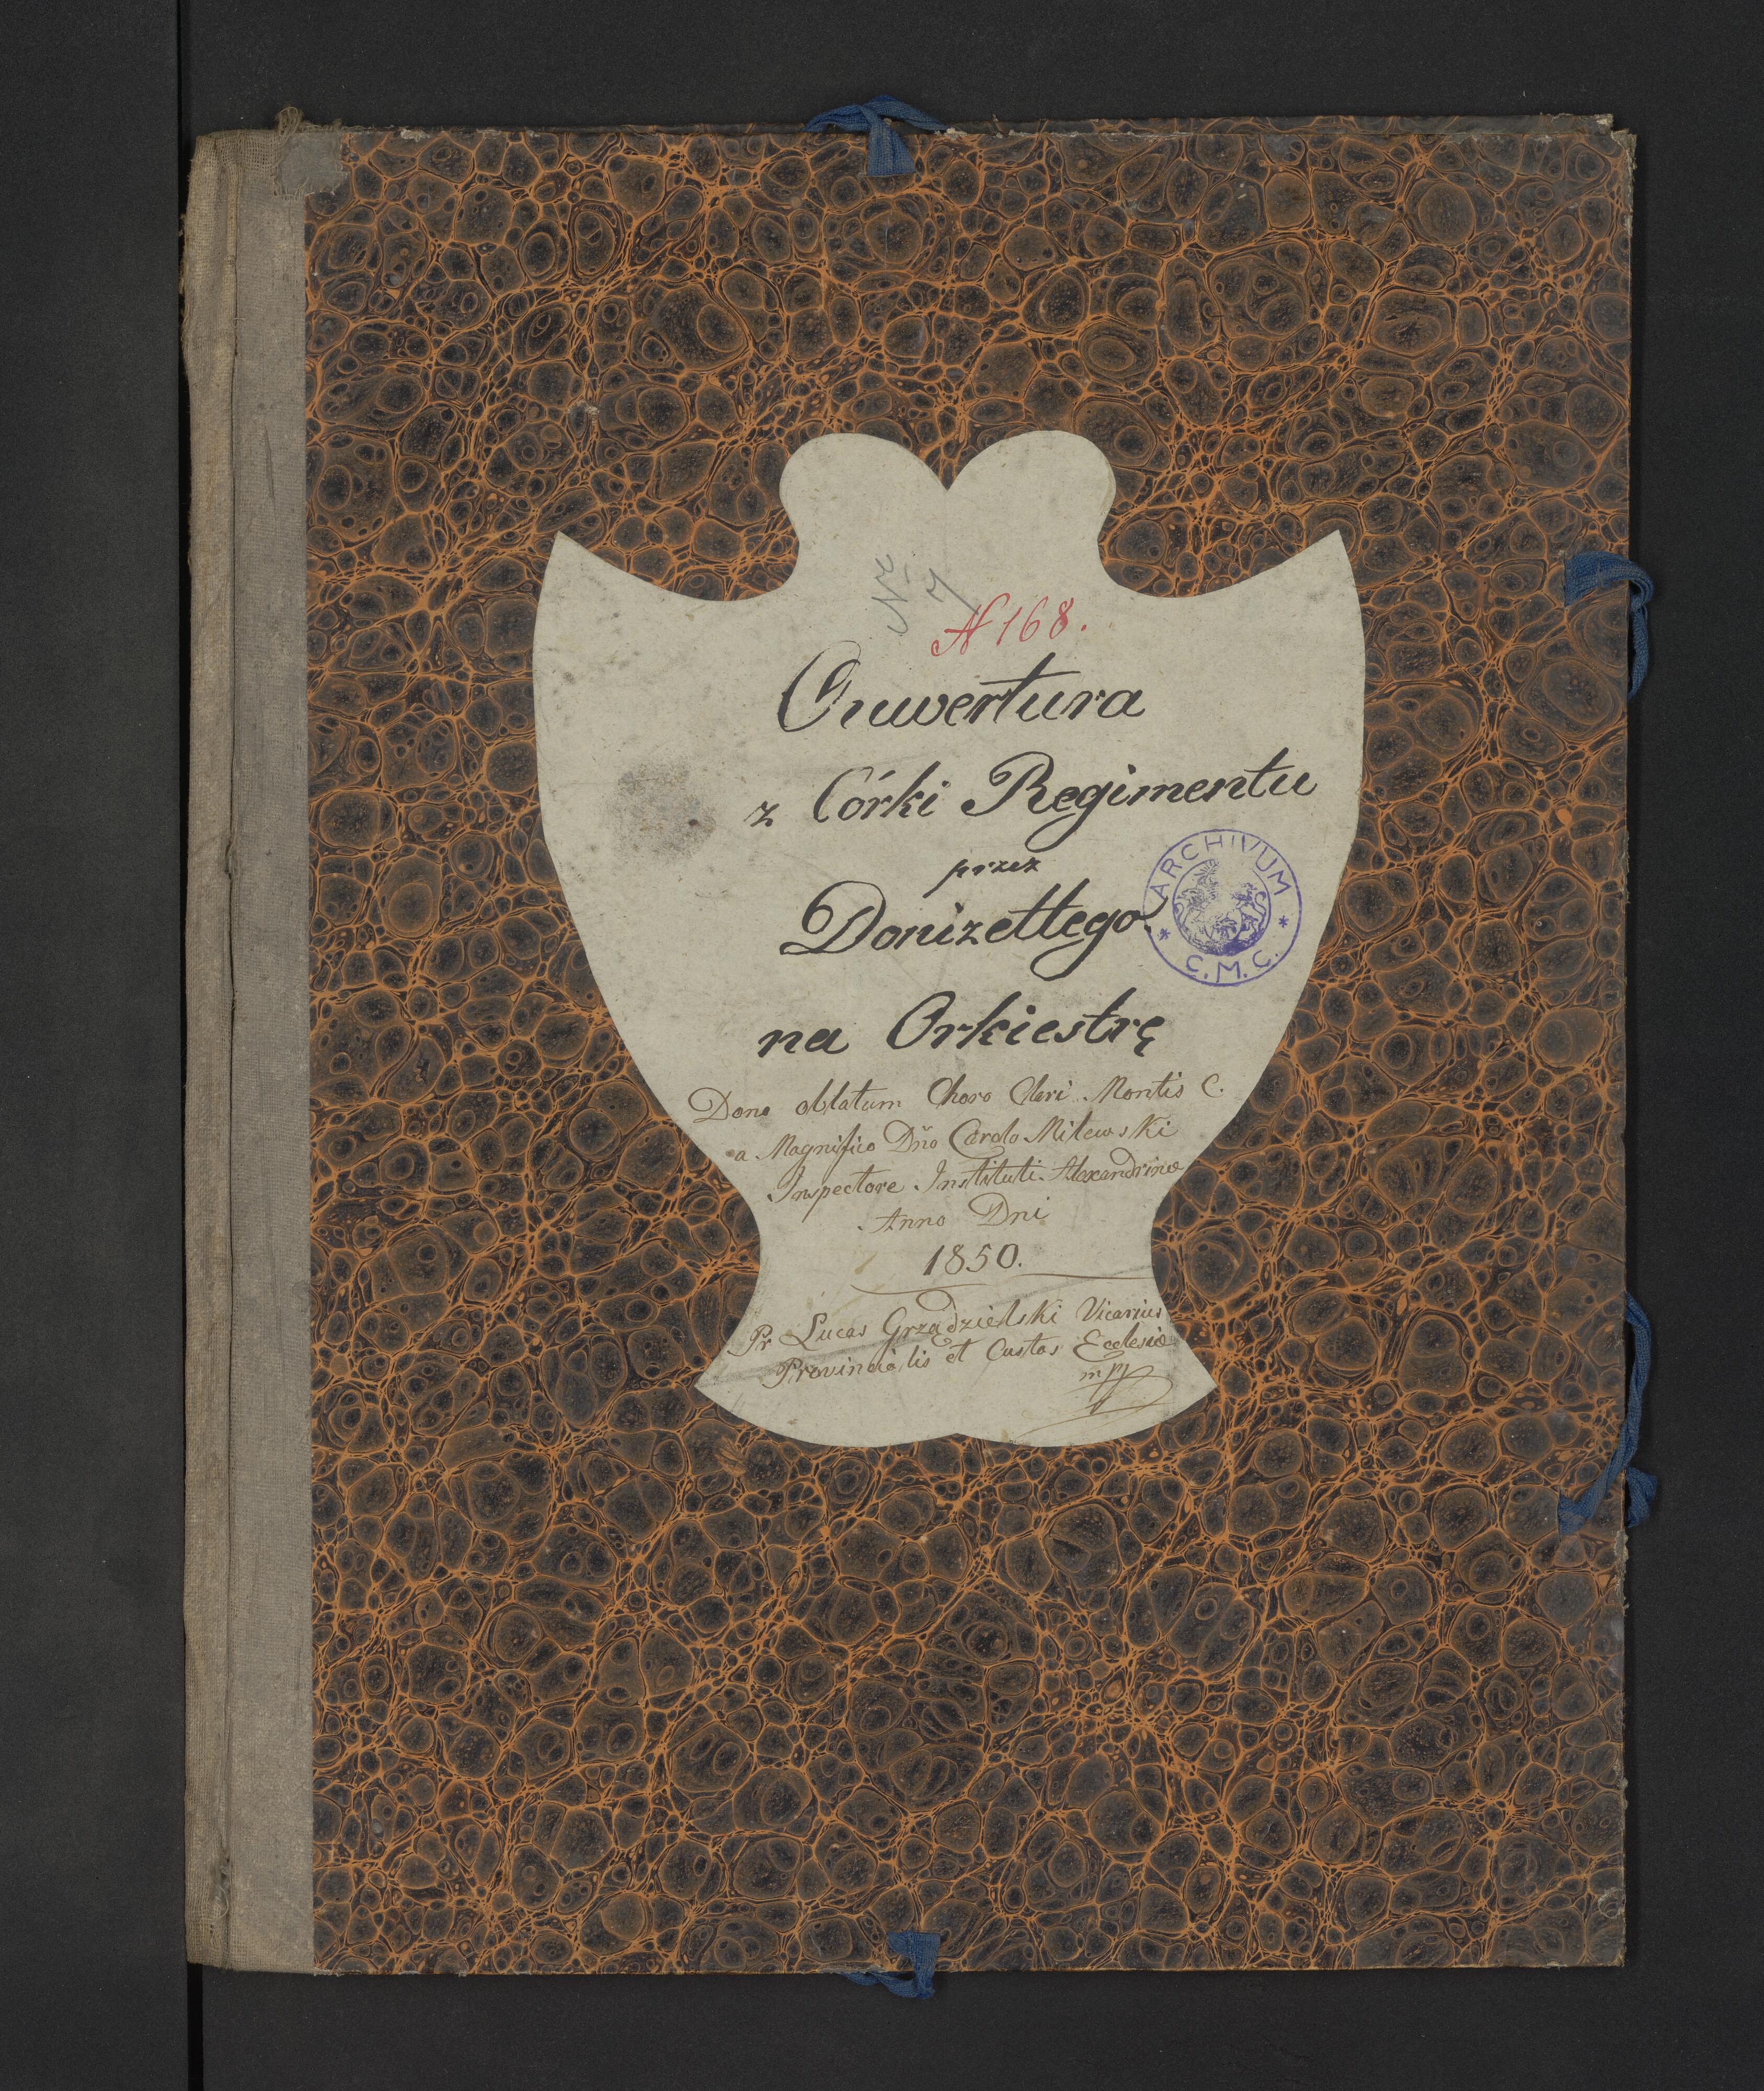 Nr 7
N 168.
Ouwertura
z Córki Regimentu
przez
Donizettego.
ARCHIVUM
* C.M.C. *
na Orkiestrę
Dono oblatum Choro Clari Montis C.
a Magnifico Dño Carolo Milewski
Inspectore Instituti Alexandrinæ
Anno Dni
1850.
Pr Lucas Grządzielski Vicarius
Provincialis et Custos Ecclesiæ
mpp